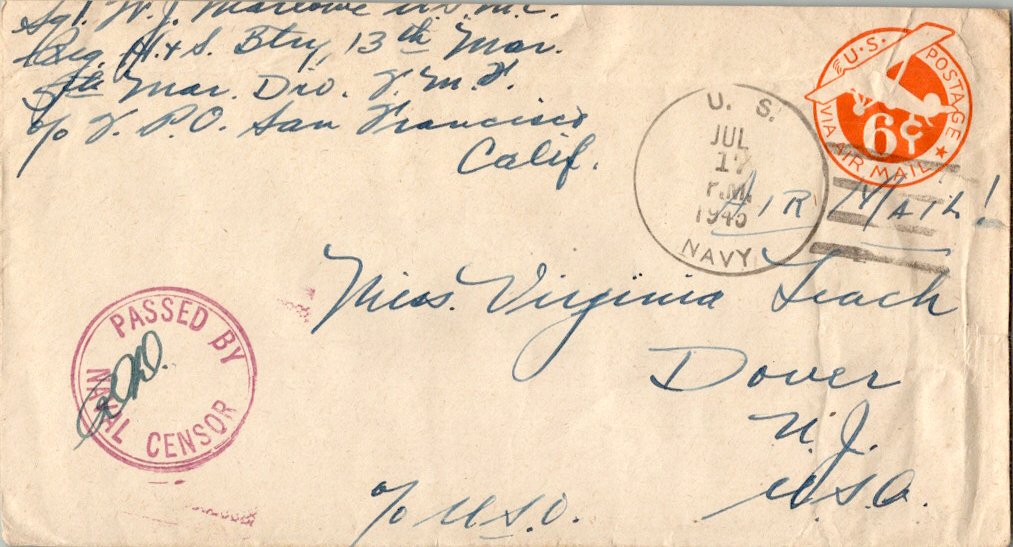 Sgt. W. J. Marlowe U.S.M.C.
Reg. H. & S. Btry, 13th Mar.
5th Mar. Div. F.M.F.
c/o F.P.O. San Francisco
Calif.
U.S. POSTAGE
6¢
VIA AIR MAIL
U. S.
JUL
17
P.M.
1945
NAVY
AIR MAIL!
PASSED BY
NAVAL CENSOR
Miss. Virginia Leach
Dover
N.J.
U.S.A.
c/o U.S.O.